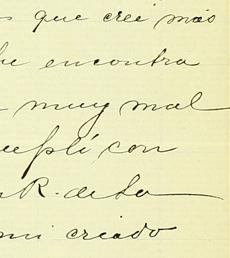 que creí más
encontra
muy mal
con
R. de La
mi criado